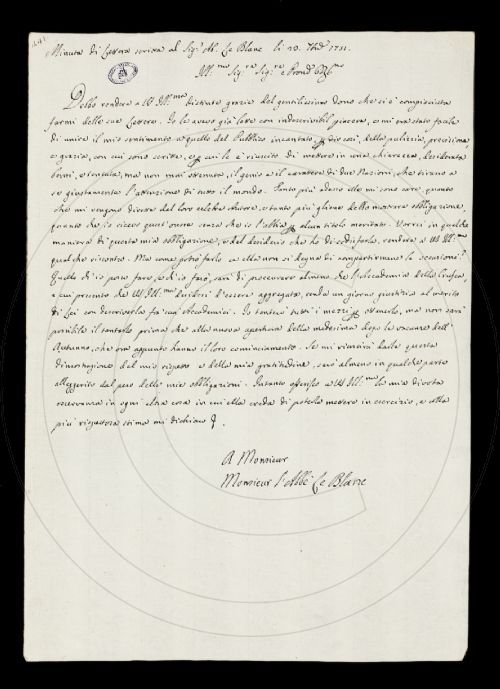 Minuta di Lettera scritta al Sig.r Ab. Le Blanc li 20. 7bre 1751.
Ill.mo Sig.re Sig.re e Pron Col.mo
Debbo rendere a VS Ill.ma distinte grazie del gentilissimo dono che si è compiaciuta
farmi delle sue Lettere. Io le aveva già lette con indescrivibil piacere, e mi era stato facile
di unire il mio sentimento a quello del Pubblico incantato per dir così, della pulizia, precisione,
e grazia, con cui sono scritte, e per cui le è riuscito di mettere in una chiarezza, desiderata
bensì, e tentata, ma non mai ottenuta, il genio e il carattere di due Nazioni, che tirano a
se giustamente l'attenzione di tutto il mondo. Tanto più adesso elle mi sono care, quanto
che mi vengono dirette dal loro celebre Autore, e tanto più gliene debbo mostrare obbligazione,
quanto che io ricevo quest'onore senza che io l'abbia per alcun titolo meritato. Vorrei in qualche
maniera di questa mia obbligazione, e del desiderio che ho di soddisfarla, rendere a VS Ill.ma
qualche riscontro. Ma come potrò farlo se ella non si degna di compartirmene le occasioni?
Quello ch'io posso fare, e ch'io farò, sarà di procurare almeno che l'Accademia della Crusca,
a cui presento che VS Ill.ma desideri d'essere aggregato, renda un giorno giustizia al merito
di Lei con descriverla fra' suoi Accademici. Io tenterò tutti i mezzi per ottenerlo, ma non sarà
possibile il tentarlo prima che alla nuova apertura della medesima dopo le vacanze dell'
Autunno, che ora appunto hanno il loro cominciamento. Se mi riuscirà darle questa
dimostrazione del mio rispetto e della mia gratitudine, sarò almeno in qualche parte
alleggerito dal peso delle mie obbligazioni. Intanto offerisco a VS Ill.ma la mia divota
osservanza in ogni altra cosa in cui ella creda di poterla mettere in esercizio, e colla
più rispettosa stima mi dichiaro
A Monsieur
Monsieur l'Abbé Le Blanc